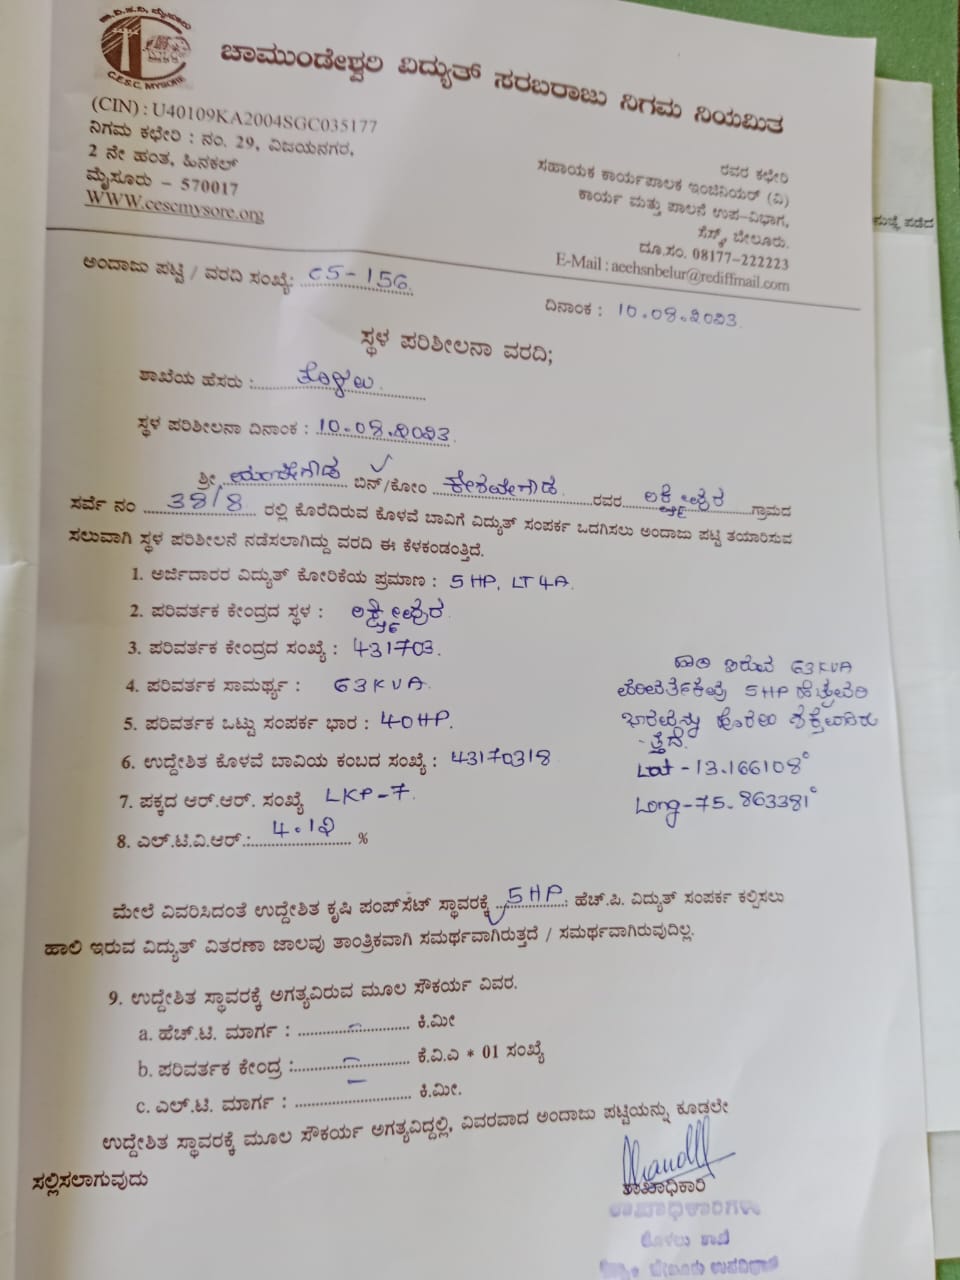 ಚಾ.ವಿ.ಸ.ನಿ. ಮೈಸೂರು
C.E.S.C. MYSORE
ಚಾಮುಂಡೇಶ್ವರಿ ವಿದ್ಯುತ್ ಸರಬರಾಜು ನಿಗಮ ನಿಯಮಿತ
(CIN) : U40109KA2004SGC035177
ನಿಗಮ ಕಛೇರಿ : ನಂ. 29, ವಿಜಯನಗರ,
2 ನೇ ಹಂತ, ಹಿನಕಲ್
ಮೈಸೂರು – 570017
WWW.cescmysore.org
ರವರ ಕಛೇರಿ
ಸಹಾಯಕ ಕಾರ್ಯಪಾಲಕ ಇಂಜಿನಿಯರ್ (ವಿ)
ಕಾರ್ಯ ಮತ್ತು ಪಾಲನೆ ಉಪ-ವಿಭಾಗ,
ಸೆಸ್ಕ್, ಬೇಲೂರು.
ದೂ.ಸಂ. 08177-222223
E-Mail : aeehsnbelur@rediffmail.com
ಅಂದಾಜು ಪಟ್ಟಿ / ವರದಿ ಸಂಖ್ಯೆ: C5-156
ದಿನಾಂಕ : 10.08.೨೦೨೩
ಸ್ಥಳ ಪರಿಶೀಲನಾ ವರದಿ;
ಶಾಖೆಯ ಹೆಸರು : ತೊಳಲು
ಸ್ಥಳ ಪರಿಶೀಲನಾ ದಿನಾಂಕ : 10.08.೨೦೨೩
ಶ್ರೀ ಬಿನ್/ಕೋಂ ಕೇಶವೇಗೌಡ ರವರ ಲಕ್ಷ್ಮೀಪುರ ಗ್ರಾಮದ
ಸರ್ವೆ ನಂ 38/8 ರಲ್ಲಿ ಕೊರೆದಿರುವ ಕೊಳವೆ ಬಾವಿಗೆ ವಿದ್ಯುತ್ ಸಂಪರ್ಕ ಒದಗಿಸಲು ಅಂದಾಜು ಪಟ್ಟಿ ತಯಾರಿಸುವ
ಸಲುವಾಗಿ ಸ್ಥಳ ಪರಿಶೀಲನೆ ನಡೆಸಲಾಗಿದ್ದು ವರದಿ ಈ ಕೆಳಕಂಡಂತ್ತಿದೆ.
1. ಅರ್ಜಿದಾರರ ವಿದ್ಯುತ್ ಕೋರಿಕೆಯ ಪ್ರಮಾಣ : 5 HP, LT 4A
2. ಪರಿವರ್ತಕ ಕೇಂದ್ರದ ಸ್ಥಳ : ಲಕ್ಷ್ಮೀಪುರ
3. ಪರಿವರ್ತಕ ಕೇಂದ್ರದ ಸಂಖ್ಯೆ : 431703.
4. ಪರಿವರ್ತಕ ಸಾಮರ್ಥ್ಯ : 63 KVA
5. ಪರಿವರ್ತಕ ಒಟ್ಟು ಸಂಪರ್ಕ ಭಾರ : 40HP.
6. ಉದ್ದೇಶಿತ ಕೊಳವೆ ಬಾವಿಯ ಕಂಬದ ಸಂಖ್ಯೆ : 43170318
7. ಪಕ್ಕದ ಆರ್.ಆರ್. ಸಂಖ್ಯೆ LKP-7.
8. ಎಲ್.ಟಿ.ವಿ.ಆರ್.: 4.1೨ %
ಹಾಲಿ ಇರುವ 63KVA
ಪರಿವರ್ತಕವು 5HP ಹೆಚ್ಚುವರಿ
ಭಾರವನ್ನು ಹೊರಲು ಶಕ್ತವಾಗಿರು
ತ್ತದೆ.
Lat - 13.166108°
Long - 75.863381°
ಮೇಲೆ ವಿವರಿಸಿದಂತೆ ಉದ್ದೇಶಿತ ಕೃಷಿ ಪಂಪ್‌ಸೆಟ್ ಸ್ಥಾವರಕ್ಕೆ 5HP ಹೆಚ್.ಪಿ. ವಿದ್ಯುತ್ ಸಂಪರ್ಕ ಕಲ್ಪಿಸಲು
ಹಾಲಿ ಇರುವ ವಿದ್ಯುತ್ ವಿತರಣಾ ಜಾಲವು ತಾಂತ್ರಿಕವಾಗಿ ಸಮರ್ಥವಾಗಿರುತ್ತದೆ / ಸಮರ್ಥವಾಗಿರುವುದಿಲ್ಲ.
9. ಉದ್ದೇಶಿತ ಸ್ಥಾವರಕ್ಕೆ ಅಗತ್ಯವಿರುವ ಮೂಲ ಸೌಕರ್ಯ ವಿವರ.
a. ಹೆಚ್.ಟಿ. ಮಾರ್ಗ : – ಕಿ.ಮೀ
b. ಪರಿವರ್ತಕ ಕೇಂದ್ರ : – ಕೆ.ವಿ.ಎ * 01 ಸಂಖ್ಯೆ
c. ಎಲ್.ಟಿ. ಮಾರ್ಗ : – ಕಿ.ಮೀ.
ಉದ್ದೇಶಿತ ಸ್ಥಾವರಕ್ಕೆ ಮೂಲ ಸೌಕರ್ಯ ಅಗತ್ಯವಿದ್ದಲ್ಲಿ, ವಿವರವಾದ ಅಂದಾಜು ಪಟ್ಟಿಯನ್ನು ಕೂಡಲೇ
ಸಲ್ಲಿಸಲಾಗುವುದು
ಶಾಖಾಧಿಕಾರಿ
ಶಾಖಾಧಿಕಾರಿಗಳು
ತೊಳಲು ಶಾಖೆ
ಬೇಲೂರು ಉಪವಿಭಾಗ